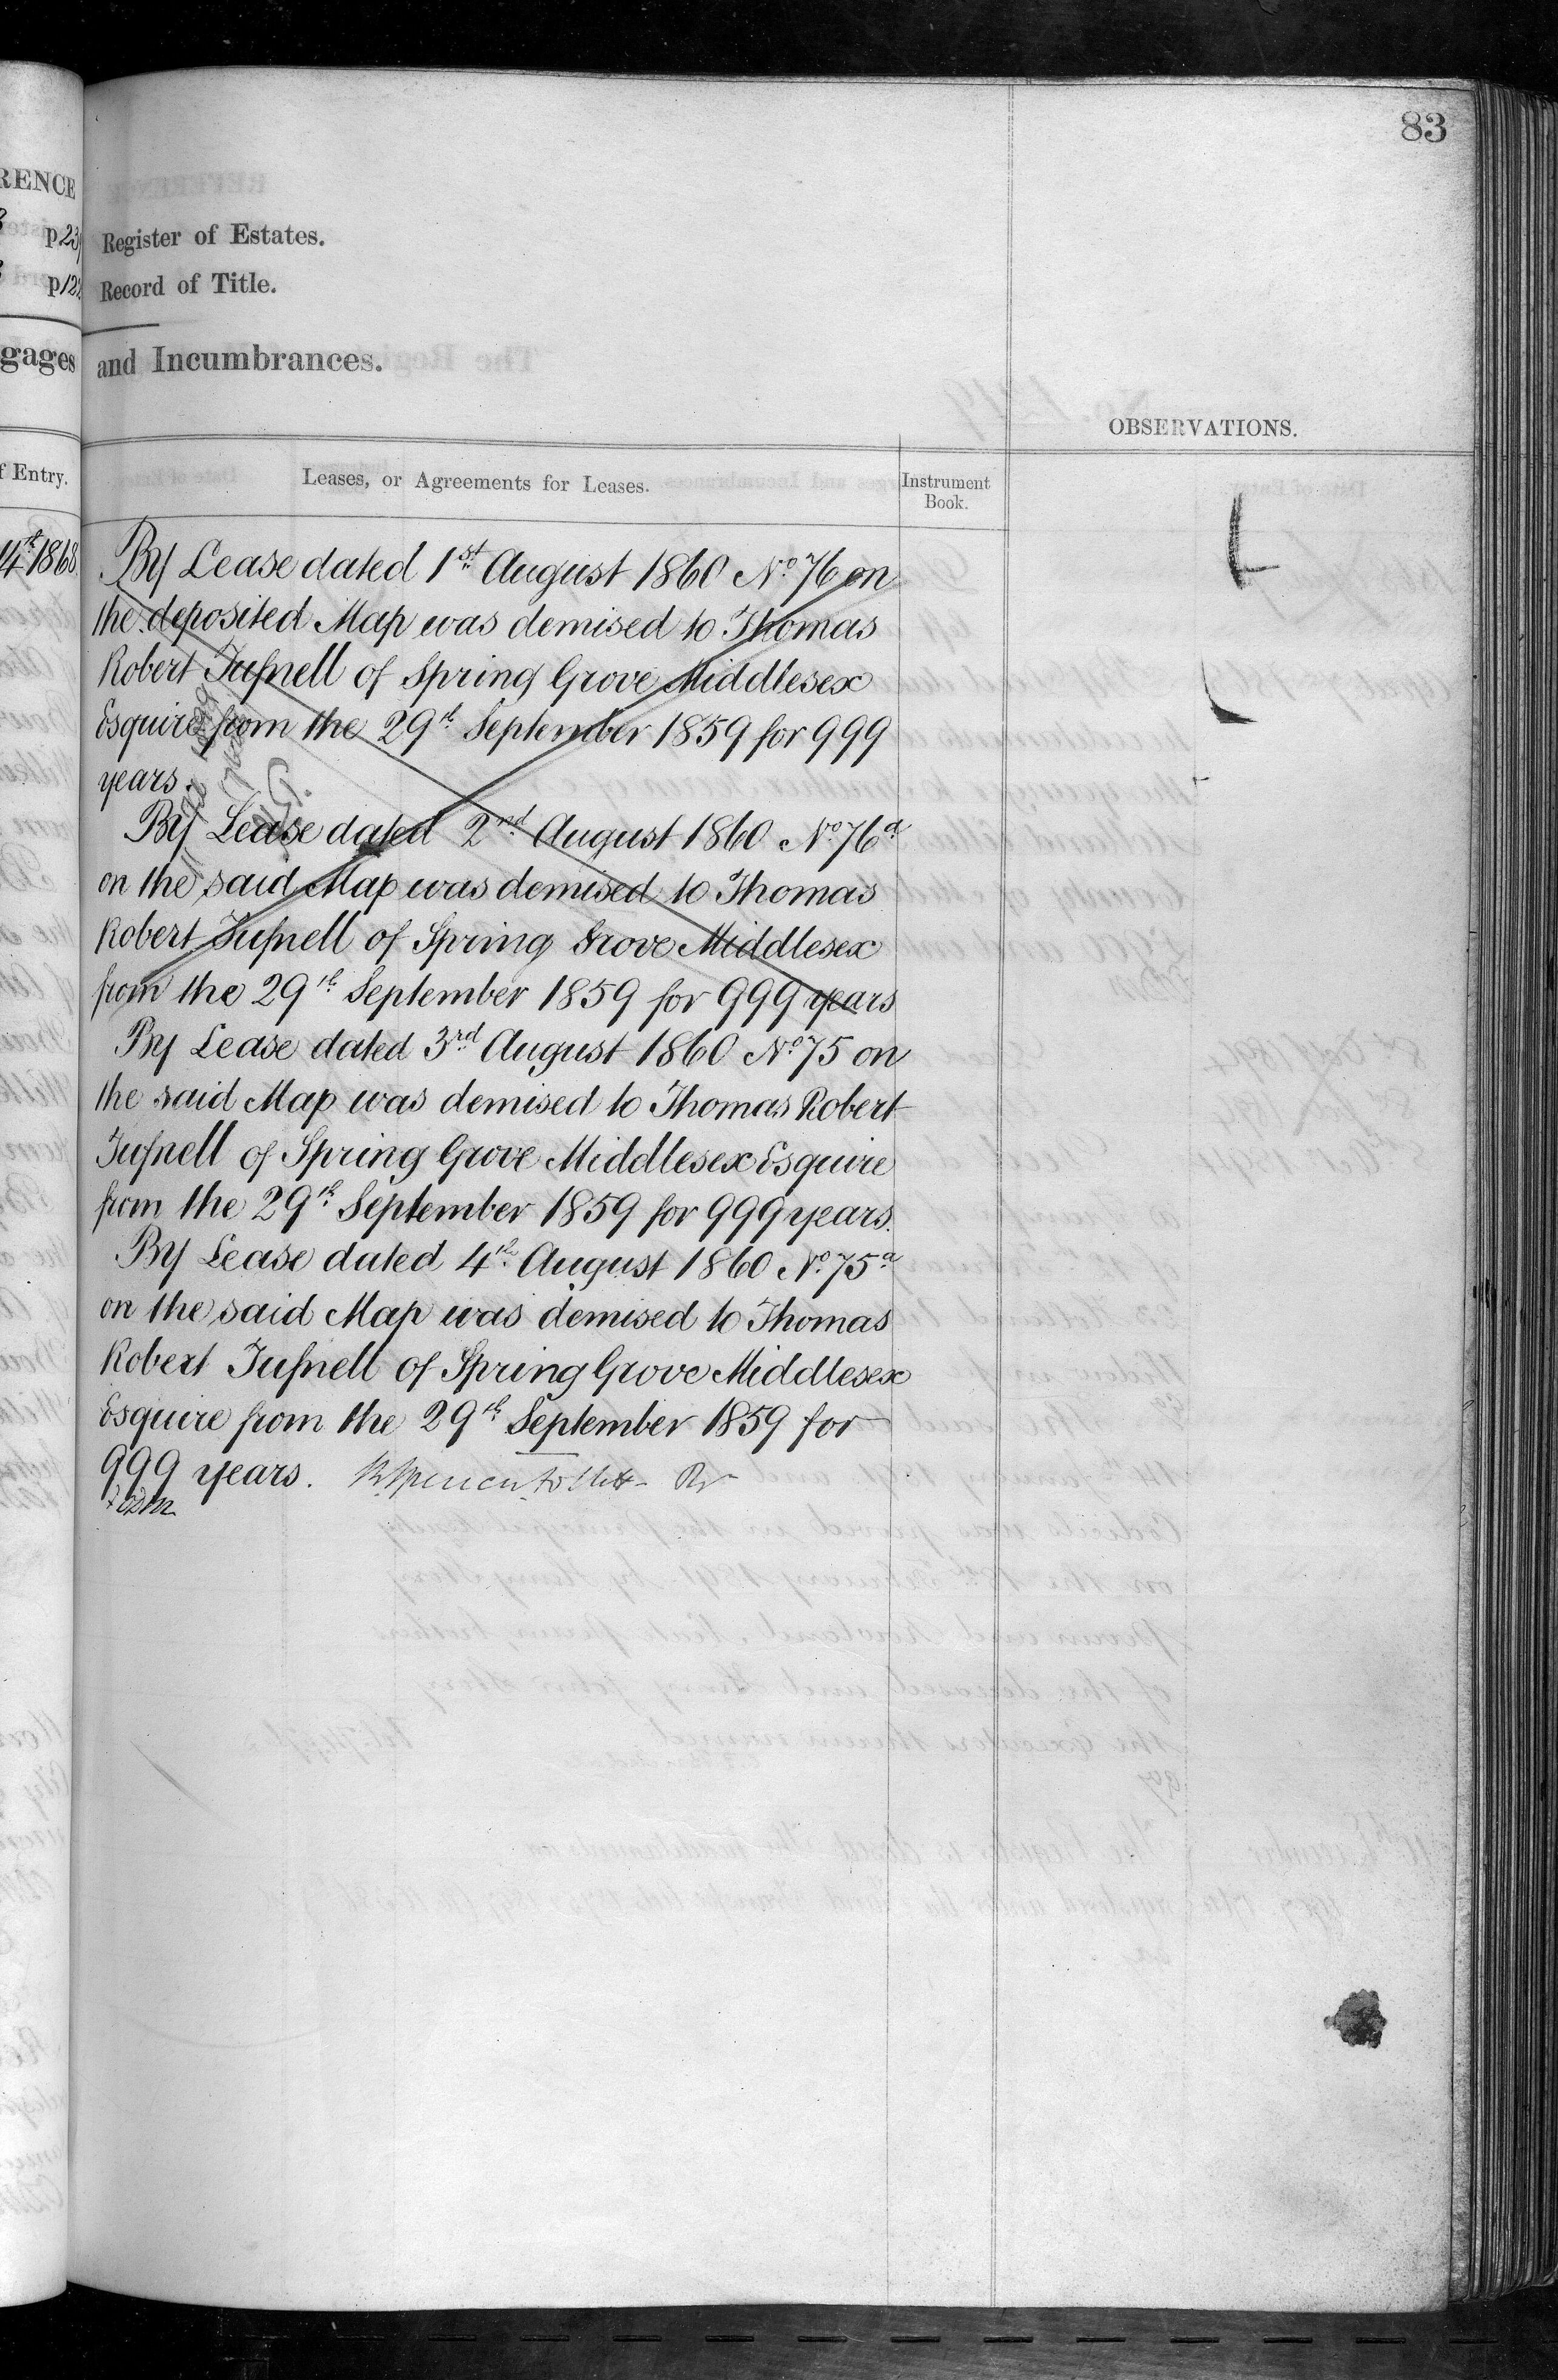 83
RENCE
p23
p12
gages
f Entry.
14th 1868
Register of Estates.
Record of Title.
and Incumbrances.
OBSERVATIONS.
Leases, or Agreements for Leases.
Instrument
Book.
By Lease dated 1st August 1860 No. 76 on
the deposited Map was demised to Thomas
Robert Tufnell of Spring Grove Middlesex
Esquire from the 29th September 1859 for 999
years.
By Lease dated 2nd August 1860 No. 76a
on the said Map was demised to Thomas
Robert Tufnell of Spring Grove Middlesex
from the 29th September 1859 for 999 years
By Lease dated 3rd August 1860 No. 75 on
the said Map was demised to Thomas Robert
Tufnell of Spring Grove Middlesex Esquire
from the 29th September 1859 for 999 years.
By Lease dated 4th August 1860 No. 75a
on the said Map was demised to Thomas
Robert Tufnell of Spring Grove Middlesex
Esquire from the 29th September 1859 for
999 years.